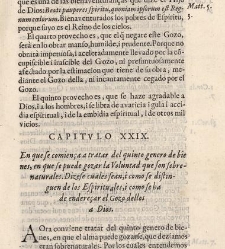 que este es vna de las bienauenturanças, que dixo el Hijo
de Dios: Beati pauperes spiritu, quoniam ipsorum est Reg- Matt. 5
num cœlorum. Bienauenturados los pobres de Espiritu, 3.
porque suyo es el Reino de los cielos.
El quarto prouecho es, que el q̃ negare este Gozo,
será en lo obrar manso, humilde, i prudente. Porque no
obrará impetuosa, i aceleradamente lleuado por la cõ-
cupiscible i irascible del Gozo, ni presuntuosamente
afectado por la estimacion que tiene de su obra, me-
diante el Gozo della, ni incautamente cegado por el
Gozo.
El quinto prouecho es, que se haze agradable a
Dios, i a los hombres, i se libra de auaricia i gula i acci-
dia espiritual, i de la embidia espiritual, i de otros mil
vicios.
CAPITVLO XXIX.
En que se comiença a tratar del quinto genero de bie-
nes, en que se puede gozar la Voluntad que son sobre-
naturales. Dizese cuales sean, i como se distin-
guen de los Espirituales, i como se ha
de endereçar el Gozo dellos
a Dios.
AOra conviene tratar del quinto genero de bie-
nes, en que el alma puede gozarse, que dezimos
eran sobrenaturales. Por los cuales entendemos